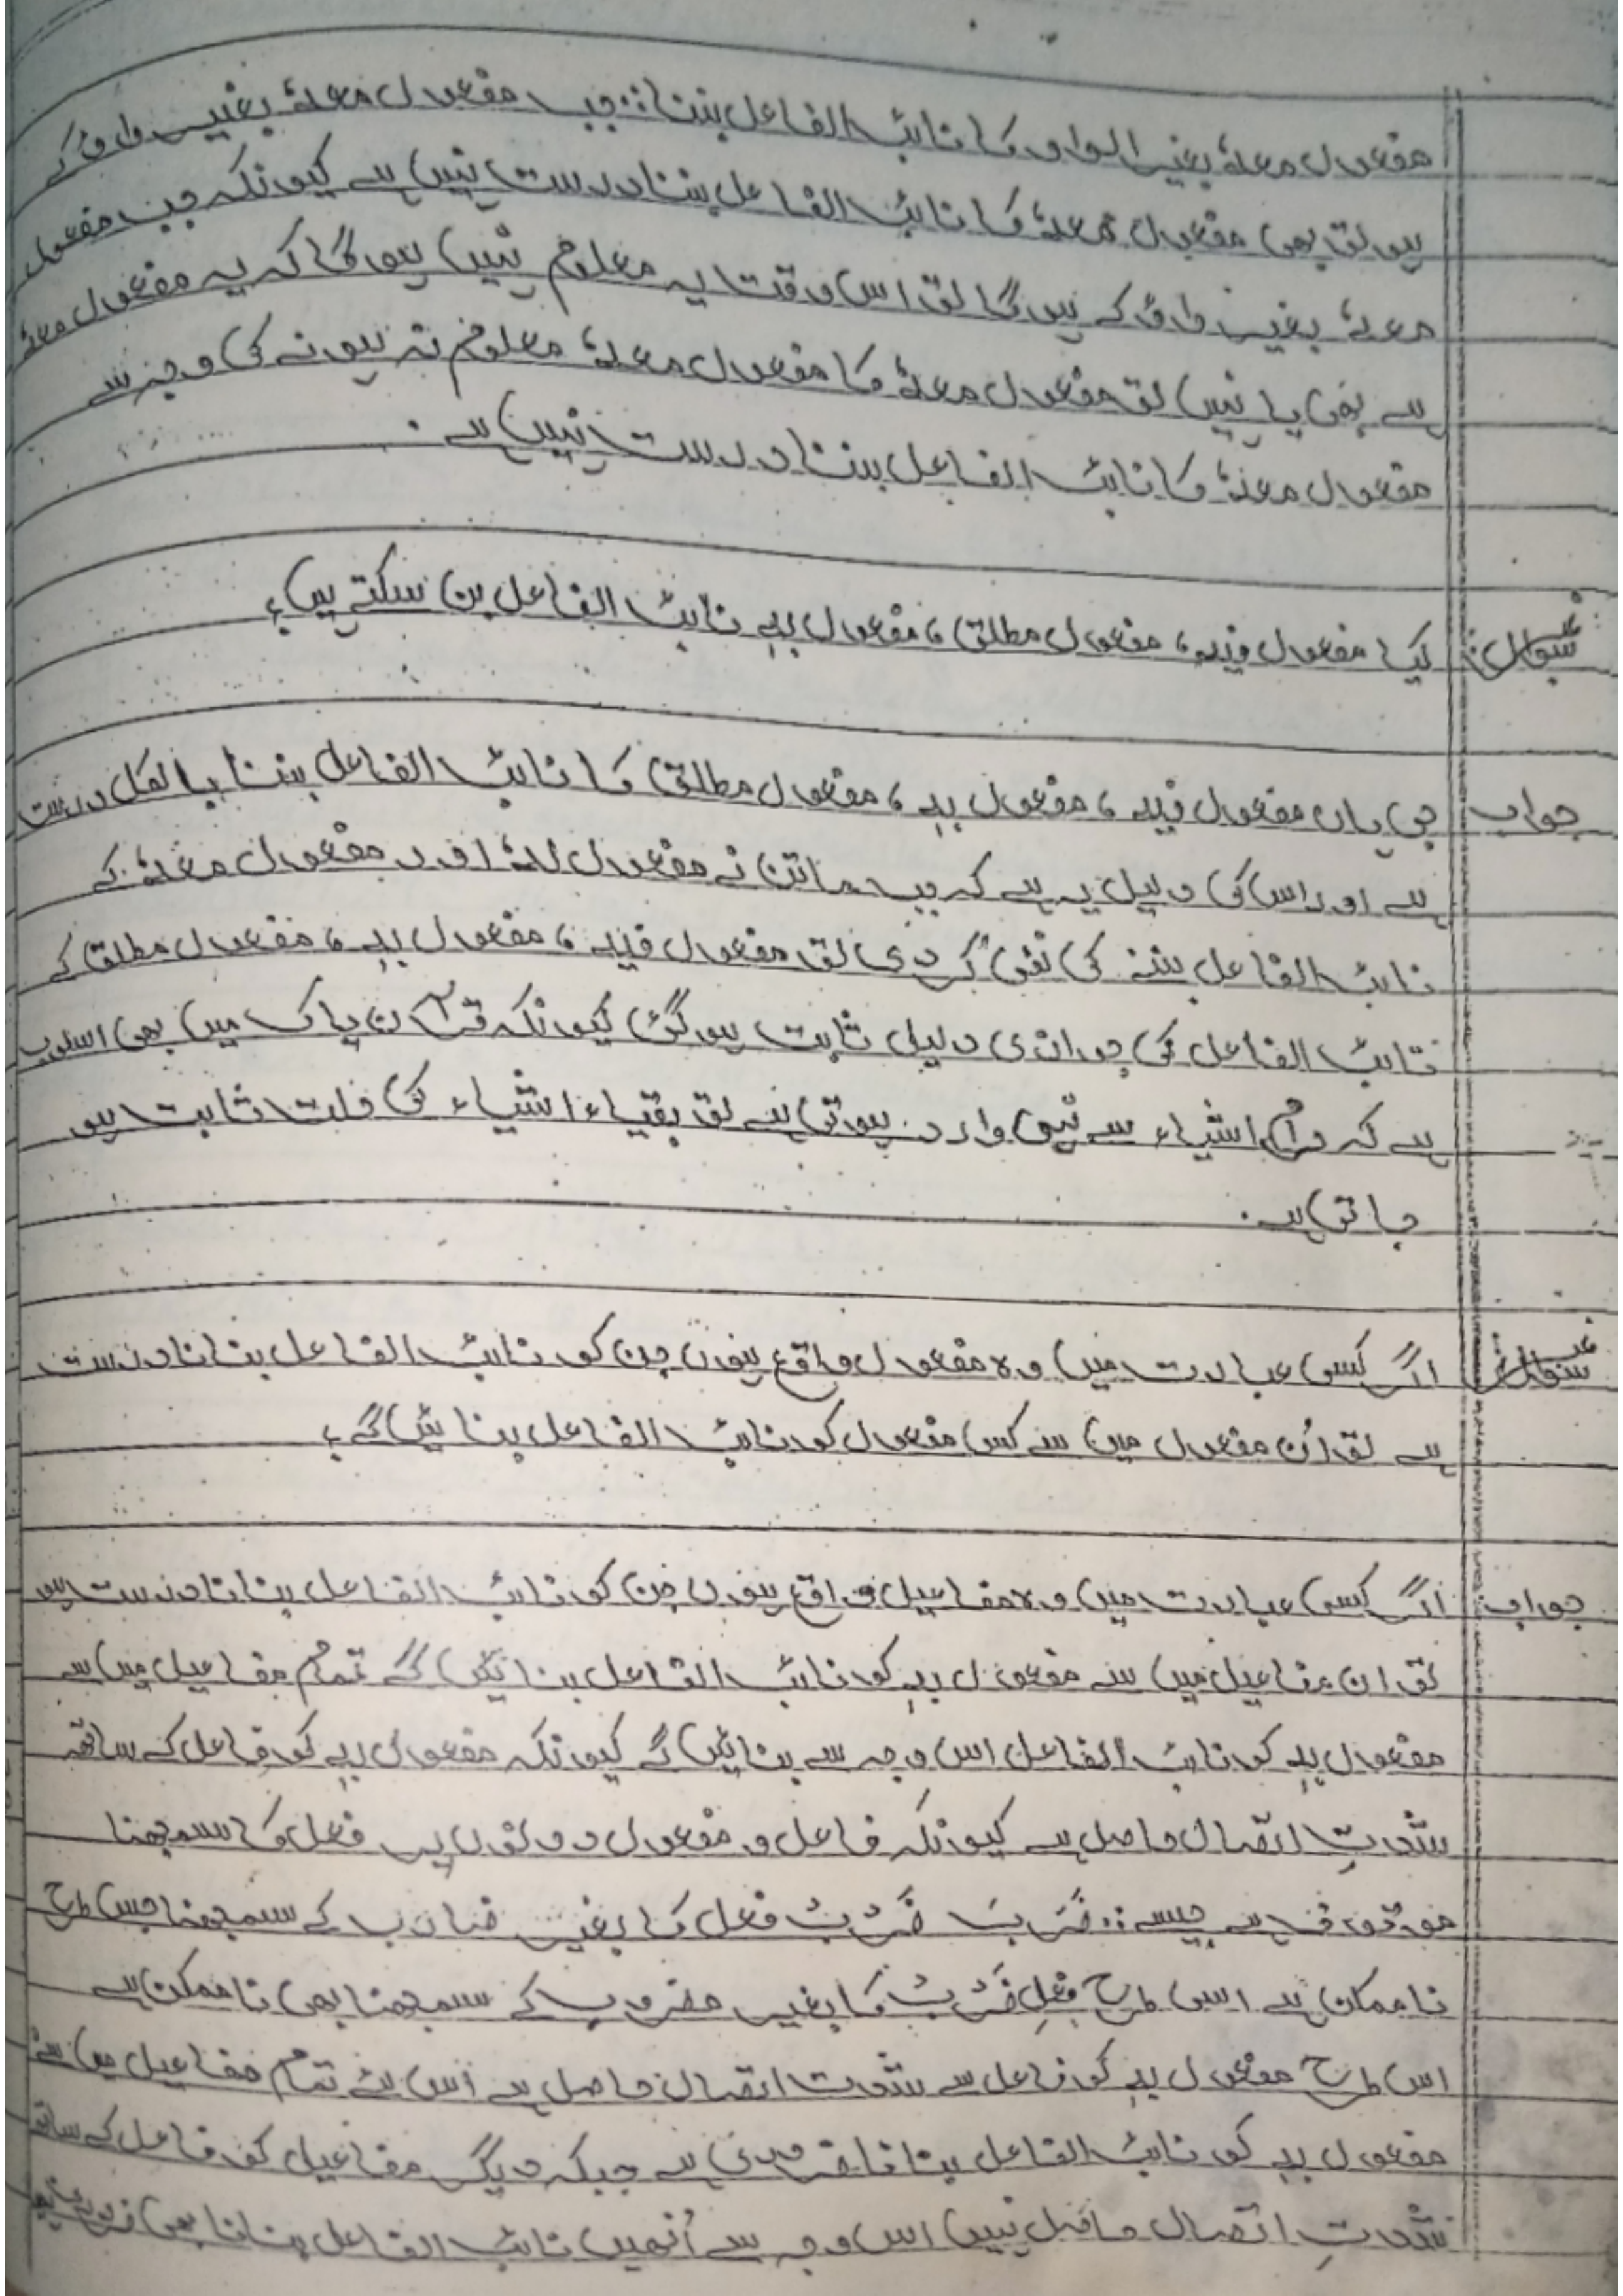 مفعول معہٗ بغیر الواو کا نائب الفاعل بننا: جب مفعول معہٗ بغیر واؤ کے
ہو تو بھی مفعول معہٗ کا نائب الفاعل بننا درست نہیں ہے کیونکہ جب مفعول
معہٗ بغیر واؤ کے ہوگا تو اس وقت یہ معلوم نہیں ہوگا کہ یہ مفعول معہٗ
ہے بھی یا نہیں تو مفعول معہٗ کا مفعول معہٗ معلوم نہ ہونے کی وجہ سے
مفعول معہٗ کا نائب الفاعل بننا درست نہیں ہے۔
سوال: کیا مفعول فیہ، مفعول مطلق، مفعول بہٖ نائب الفاعل بن سکتے ہیں؟
جواب جی ہاں مفعول فیہ، مفعول بہٖ، مفعول مطلق کا نائب الفاعل بننا بالکل درست
ہے اور اس کی دلیل یہ ہے کہ جب ماتن نے مفعول لہٗ اور مفعول معہٗ کے
نائب الفاعل بننے کی نفی کر دی تو مفعول فیہ، مفعول بہٖ، مفعول مطلق کے
نائب الفاعل کی جوازی دلیل ثابت ہوگئی کیونکہ قرآن پاک میں بھی اسلوب
ہے کہ اشیاء سے نہی وارد ہوتی ہے تو بقیاء اشیاء کی حلت ثابت ہو
جاتی ہے۔
سوال اگر کسی عبارت میں وہ مفعول واقع ہوں جن کو نائب الفاعل بنانا درست
ہے تو اُن مفعول میں سے کس مفعول کو نائب الفاعل بنائیں گے؟
جواب اگر کسی عبارت میں وہ مفاعیل واقع ہوں جن کو نائب الفاعل بنانا درست ہو
تو ان مفاعیل میں سے مفعول بہٖ کو نائب الفاعل بنائیں گے تمام مفاعیل میں سے
مفعول بہٖ کو نائب الفاعل اس وجہ سے بنائیں گے کیونکہ مفعول بہٖ کو فاعل کے ساتھ
شدتِ اتصال حاصل ہے کیونکہ فاعل و مفعول دونوں پر فعل کا سمجھنا
موقوف ہے جیسے: ضَرَبَ ضَرَبَ فعل کا بغیر ضارب کے سمجھنا جس طرح
ناممکن ہے اسی طرح فعلِ ضَرَبَ کا بغیر مضروب کے سمجھنا بھی ناممکن ہے
اس طرح مفعول بہٖ کو فاعل سے شدت اتصال حاصل ہے اس لئے تمام مفاعیل میں سے
مفعول بہٖ کو نائب الفاعل بنانا ضروری ہے جبکہ دیگر مفاعیل کو فاعل کے ساتھ
شدتِ اتصال حاصل نہیں اس وجہ سے اُنہیں نائب الفاعل بنانا بھی